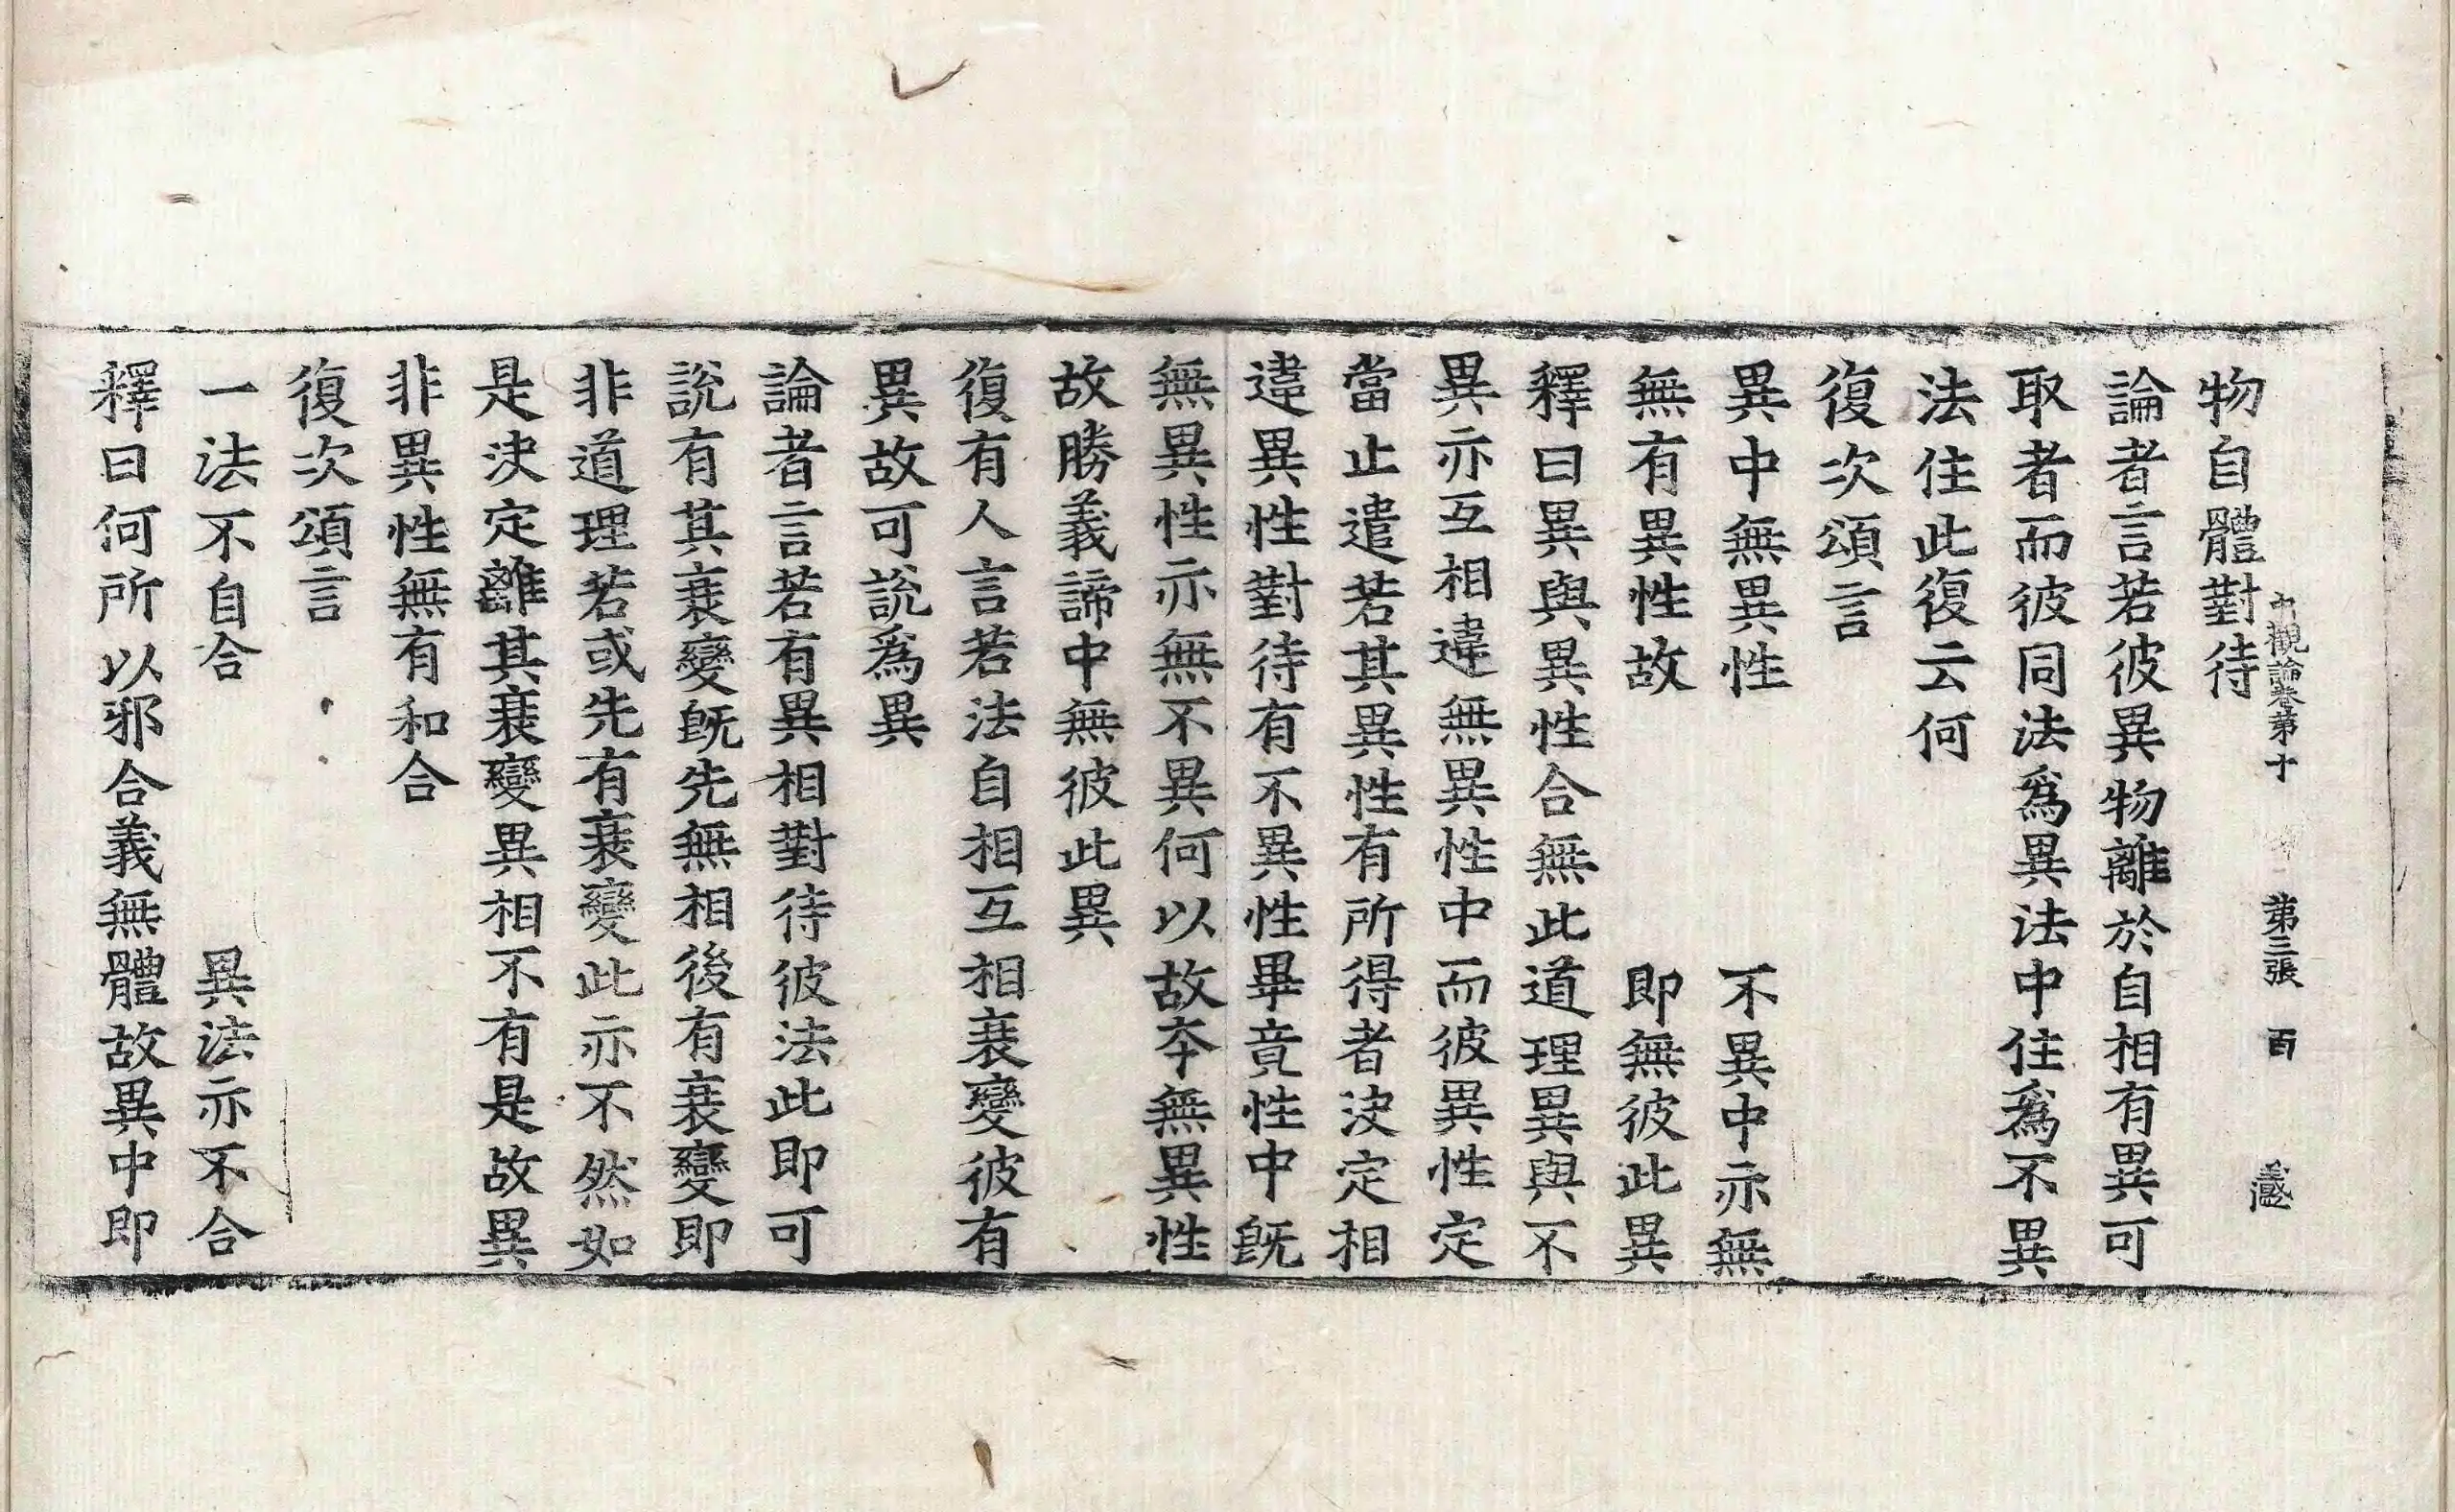 中觀論卷第十 第三張 百
物自體對待
論者言若彼異物離於自相有異可
取者而彼同法爲異法中住爲不異
法住此復云何
復次頌言
異中無異性 不異中亦無
無有異性故 即無彼此異
釋曰異與異性合無此道理異與不
異亦互相違無異性中而彼異性定
當止遣若其異性有所得者決定相
違異性對待有不異性畢竟性中旣
無異性亦無不異何以故夲無異性
故勝義諦中無彼此異
復有人言若法自相互相衰變彼有
異故可說爲異
論者言若有異相對待彼法此即可
說有其衰變旣先無相後有衰變即
非道理若或先有衰變此亦不然如
是決定離其衰變異相不有是故異
非異性無有和合
復次頌言
一法不自合 異法亦不合
釋曰何所以邪合義無體故異中即